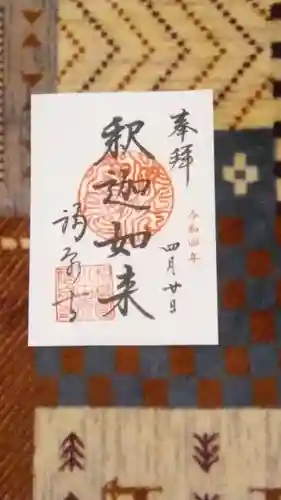 奉拝
令和四年
四月廿日
釈迦如来